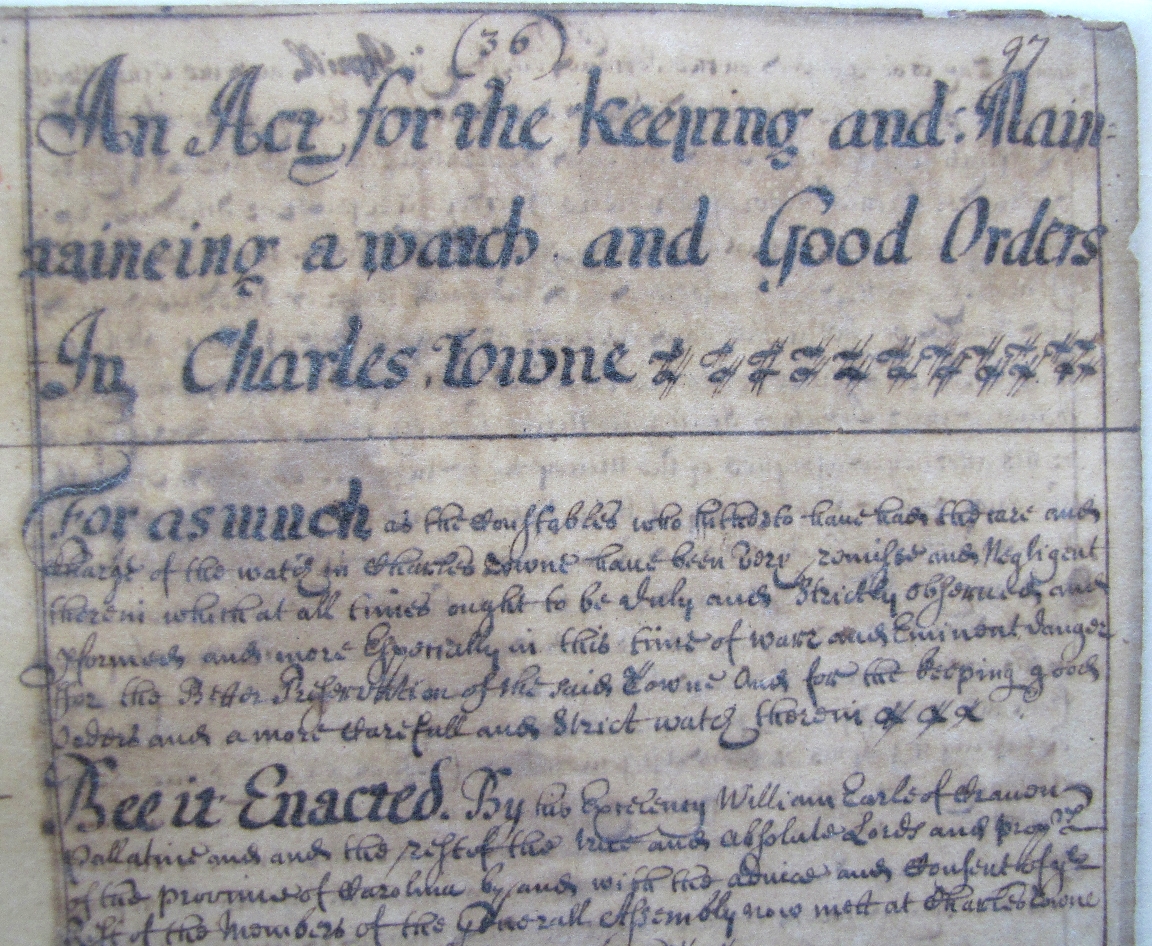 (36)
97
An Act for the keeping and Main-
taineing a watch and Good Orders
In Charles Towne
For as much as the Constables who hitherto have had the care and
Charge of the watch in Charles Towne have been very remisse and Negligent
therein which at all times ought to be duly and Strictly observed and
pformed and more Especially in this time of warr and Eminent danger
ffor the Better Preservation of the said Towne And for the keeping good
Orders and a more Carefull and Strict watch therein
Bee it Enacted. By his Excelency William Earle of Craven
Pallatine and and the rest of the true and absolute Lords and prop
of the province of Carolina by and with the advice and Consent of ye
Rest of the Members of the Generall Assembly now mett at Charles Towne